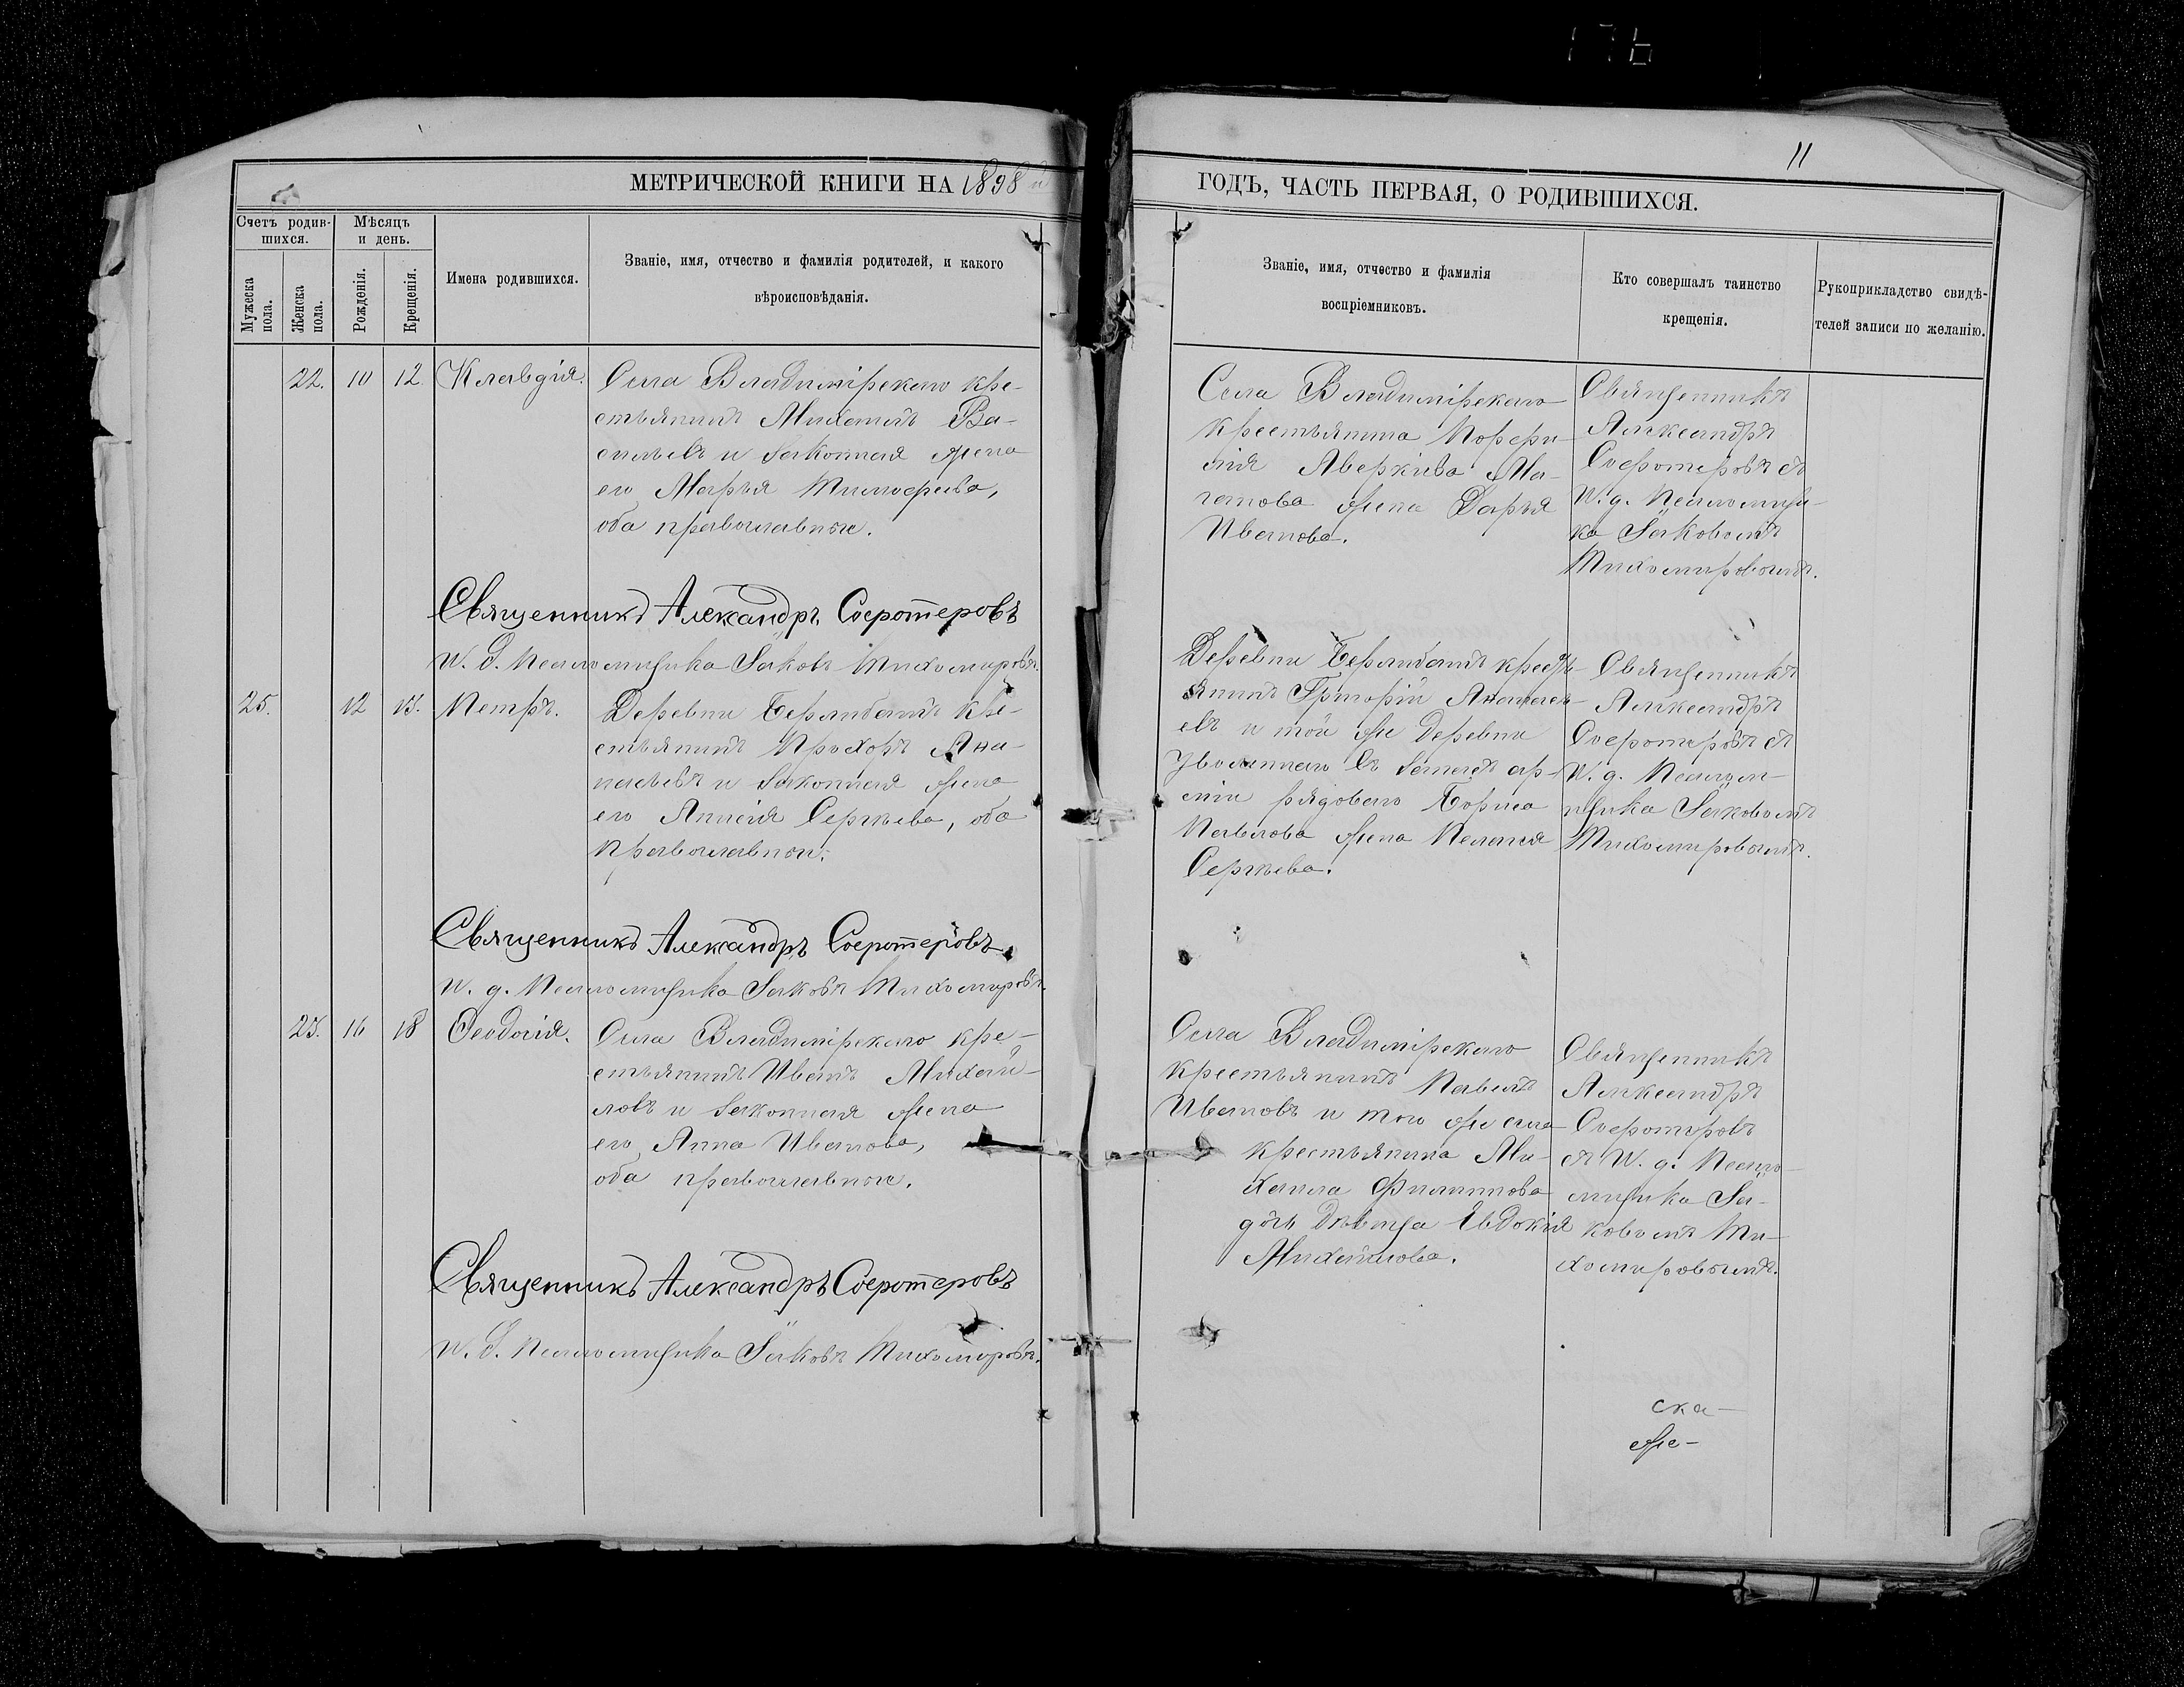 176
11
МЕТРИЧЕСКОЙ КНИГИ НА 1898й
ГОДЪ, ЧАСТЬ ПЕРВАЯ, О РОДИВШИХСЯ.
Счетъ родив-
шихся.
Мѣсяцъ
и день.
Мужеска
пола.
Женска
пола.
Рожденія.
Крещенія.
Имена родившихся.
Званіе, имя, отчество и фамилія родителей, и какого
вѣроисповѣданія.
Званіе, имя, отчество и фамилія
воспріемниковъ.
Кто совершалъ таинство
крещенія.
Рукоприкладство свидѣ-
телей записи по желанію.
22. 10 12. Клавдія.
Села Владимірскаго кре-
стьянинъ Михаилъ Ва-
сильевъ и законная жена
его Марья Тимофеева,
оба православные.
Села Владимірскаго
крестьянина Порфи-
рія Аверкіева Ма-
жена Дарья
Иванова.
Священникъ
Александръ
Сосфотеровъ съ
И. д. Псаломщи-
ка Яковомъ
Тихомировымъ.
Священникъ Александръ Соеротеровъ
И. д. Псаломщика Яковъ Тихомировъ.
25. 12 15. Петръ.
Деревни кре-
стьянинъ Прохоръ Ана-
ньевъ и законная жена
его Анисія Сергѣева, оба
православные.
Деревни кресть-
янинъ Григорій
евъ и той же деревни
уволеннаго въ запасъ ар-
міи рядоваго Бориса
Павлова жена Пелагія
Сергѣева.
Священникъ
Александръ
Соеротеровъ съ
И. д. Псалом-
щика Яковомъ
Тихомировымъ.
Священникъ Александръ Соеротеровъ
И. д. Псаломщика Яковъ Тихомировъ.
23. 16 18 Ѳеодосія.
Села Владимірскаго кре-
стьянинъ Иванъ Михай-
ловъ и законная жена
его Анна Иванова,
оба православные.
Села Владимірскаго
крестьянинъ Павелъ
Ивановъ и того же села
крестьянина Ми-
хаила Филиппова
дочь дѣвица Евдокія
Михайлова.
Священникъ
Александръ
Соеротеровъ
съ И. д. Псало-
мщика Я-
ковомъ Ти-
хомировымъ.
Священникъ Александръ Соеротеровъ
И. д. Псаломщика Яковъ Тихомировъ.
ска-
же-